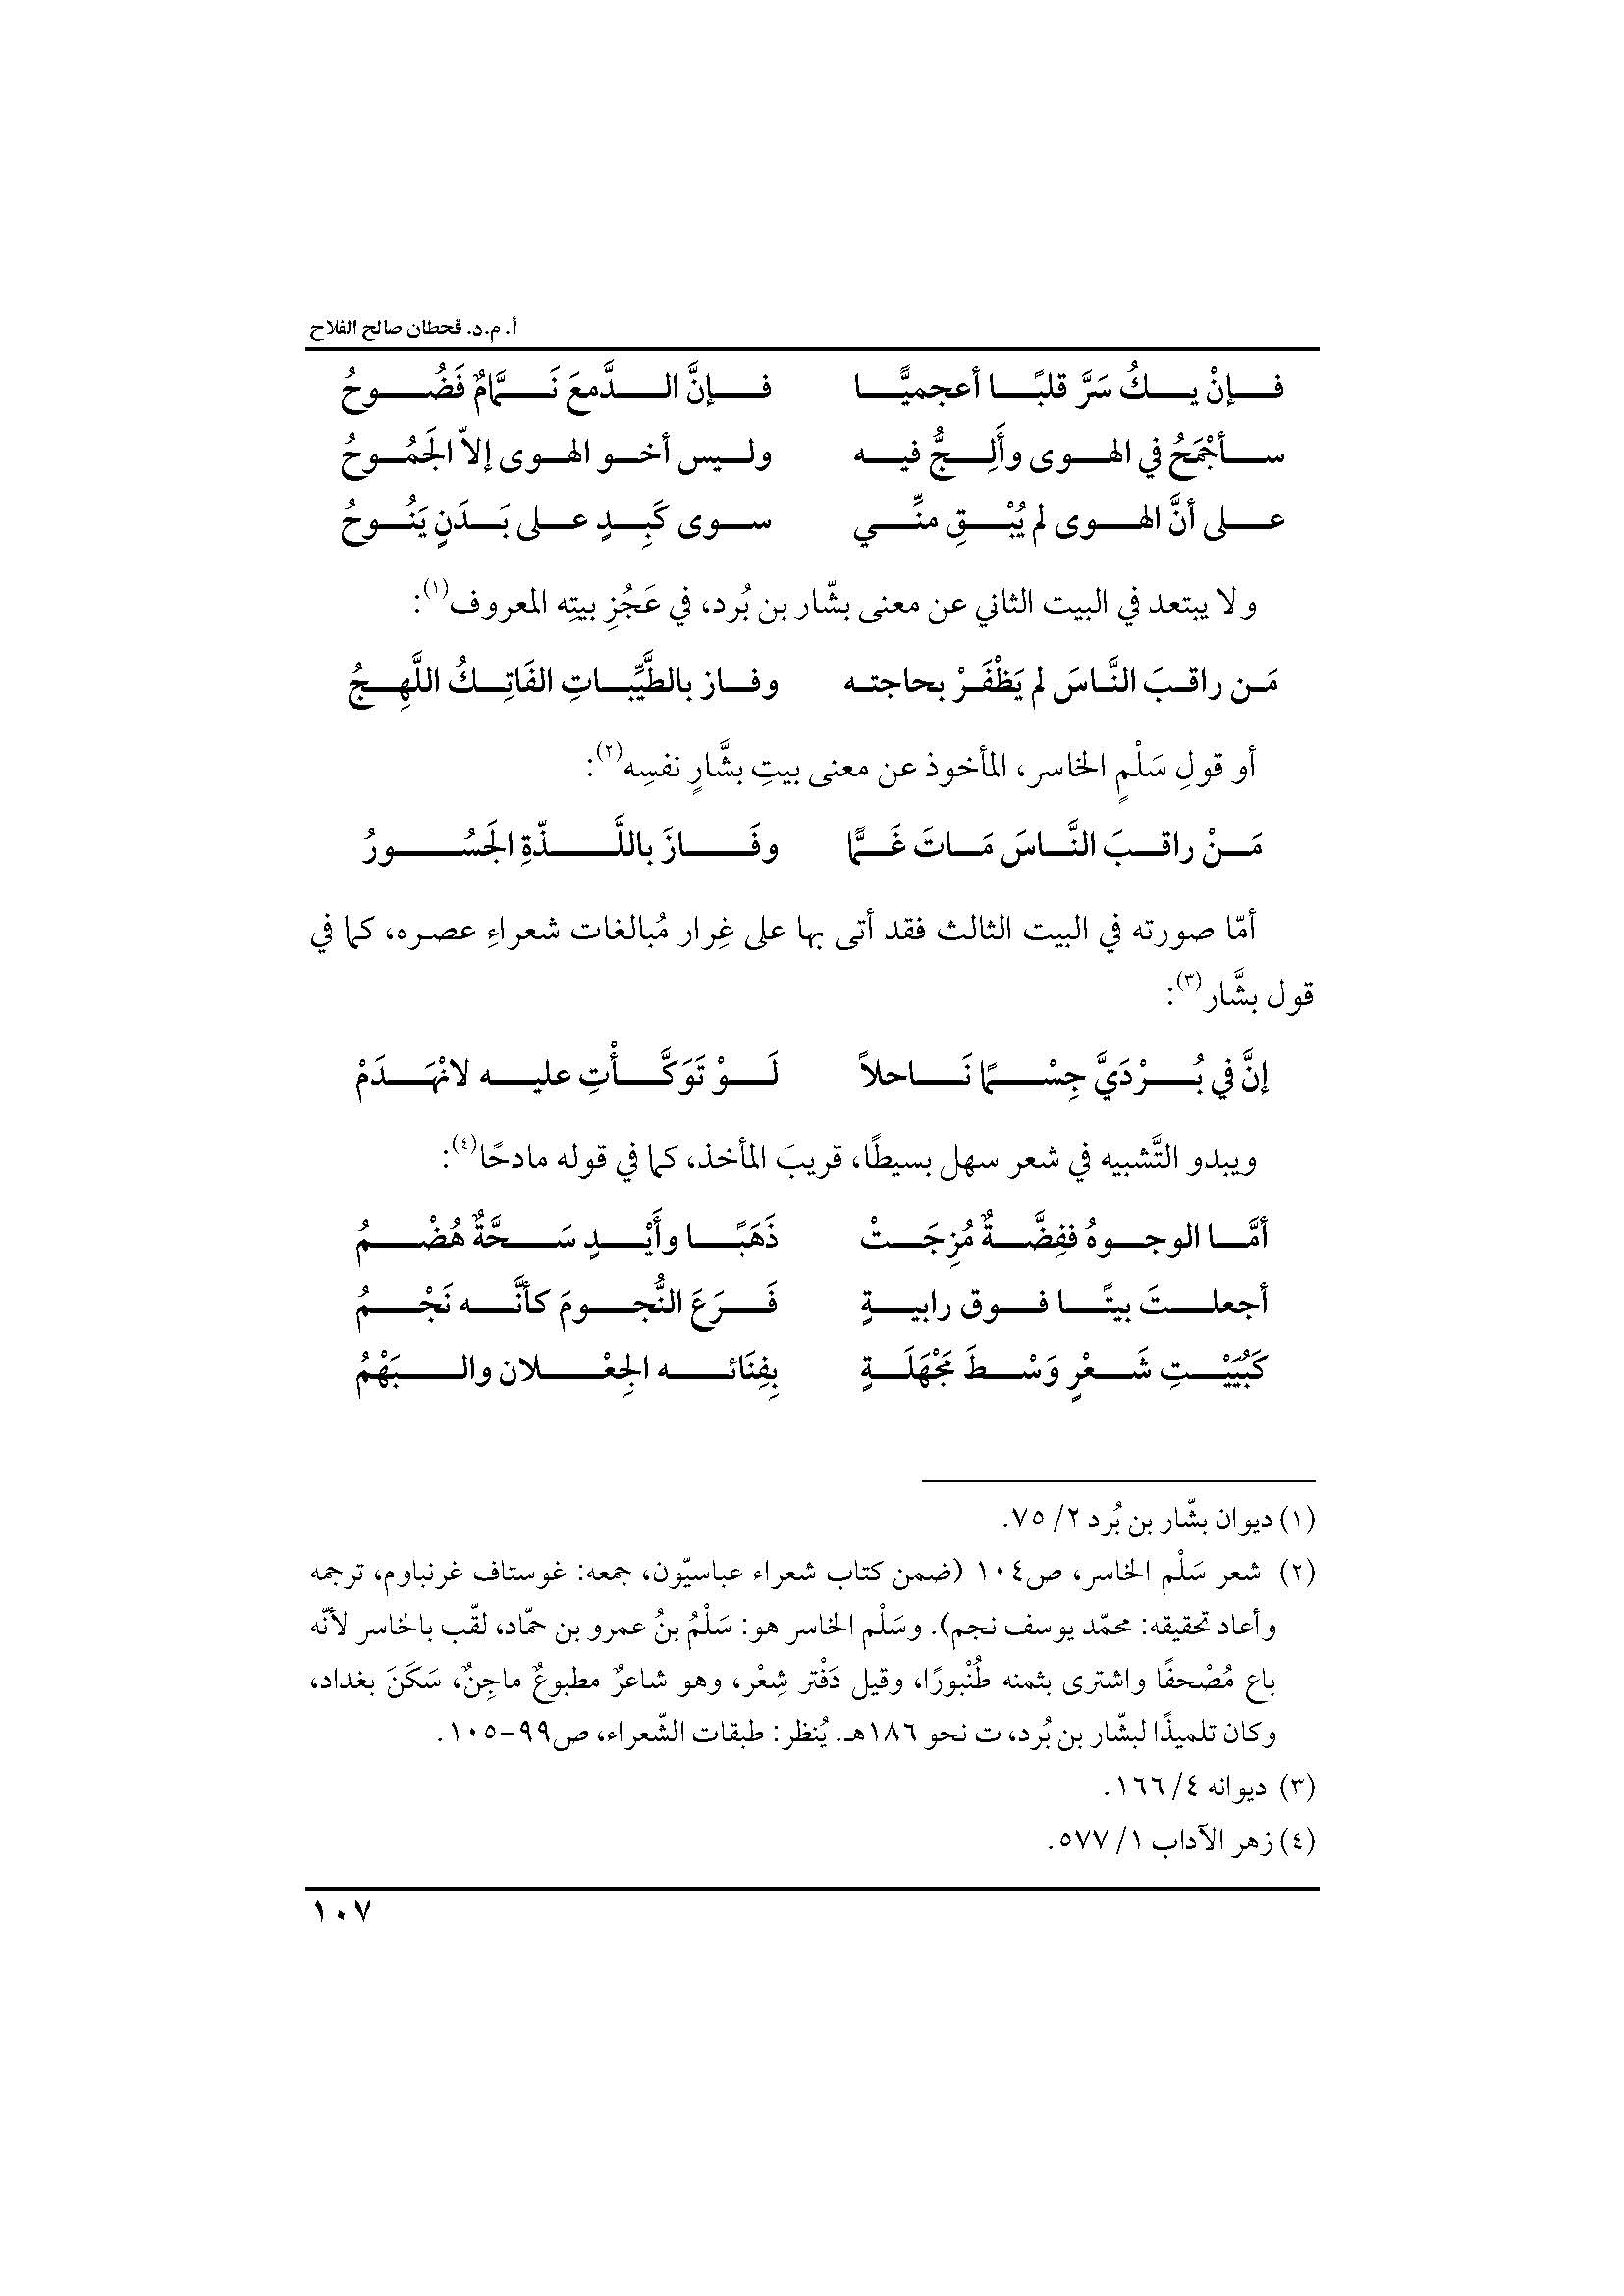 أ. م.د. قحطان صالح الفلاح
فإنْ يكُ سَرَّ قلبًا أعجميًّا فإنَّ الدَّمعَ نَمَّامٌ فَضُوحُ
سأجْمَحُ في الهوى وأَلِجُّ فيه وليس أخو الهوى إلاّ الجَمُوحُ
على أنَّ الهوى لم يُبْقِ منِّي سوى كَبِدٍ على بَدَنٍ يَنُوحُ
ولا يبتعد في البيت الثاني عن معنى بشّار بن بُرد، في عَجُزِ بيتِه المعروف(١):
مَن راقبَ النَّاسَ لم يَظْفَرْ بحاجته وفاز بالطَّيِّباتِ الفَاتِكُ اللَّهِجُ
أو قولِ سَلْمٍ الخاسر، المأخوذ عن معنى بيتِ بشَّارٍ نفسِه(٢):
مَنْ راقبَ النَّاسَ مَاتَ غَمًّا وفَازَ باللَّذّةِ الجَسُورُ
أمّا صورته في البيت الثالث فقد أتى بها على غِرار مُبالغات شعراءِ عصره، كما في
قول بشَّار(٣):
إنَّ في بُرْدَيَّ جِسْمًا نَاحلاً لَوْ تَوَكَّأْتِ عليه لانْهَدَمْ
ويبدو التَّشبيه في شعر سهل بسيطًا، قريبَ المأخذ، كما في قوله مادحًا(٤):
أمَّا الوجوهُ ففِضَّةٌ مُزِجَتْ ذَهَبًا وأَيْدٍ سَحَّةٌ هُضْمُ
أجعلتَ بيتًا فوق رابيةٍ فَرَعَ النُّجومَ كأنَّه نَجْمُ
كَبُيَيْتِ شَعْرٍ وَسْطَ مَجْهَلَةٍ بِفِنَائه الجِعْلان والبَهْمُ
(١) ديوان بشّار بن بُرد ٢/ ٧٥.
(٢) شعر سَلْم الخاسر، ص١٠٤ (ضمن كتاب شعراء عباسيّون، جمعه: غوستاف غرنباوم، ترجمه
وأعاد تحقيقه: محمّد يوسف نجم). وسَلْم الخاسر هو: سَلْمُ بنُ عمرو بن حمّاد، لقّب بالخاسر لأنّه
باع مُصْحفًا واشترى بثمنه طُنْبورًا، وقيل دَفْتر شِعْر، وهو شاعرٌ مطبوعٌ ماجِنٌ، سَكَنَ بغداد،
وكان تلميذًا لبشّار بن بُرد، ت نحو ١٨٦هـ. يُنظر: طبقات الشّعراء، ص٩٩-١٠٥.
(٣) ديوانه ٤/ ١٦٦.
(٤) زهر الآداب ١/ ٥٧٧.
١٠٧